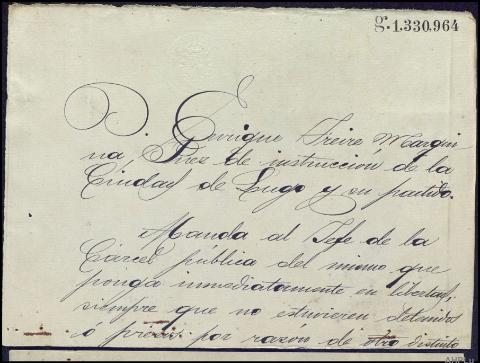 g.1.330.964
D. Enrique Freire Marqui
na, Juez de instruccion de la
Ciudad de Lugo y su partido.
Manda al Jefe de la
Cárcel pública del mismo que
ponga inmediatamente en libertad,
siempre que no estuvieren detenidos
ó presos por razón de otro distinto